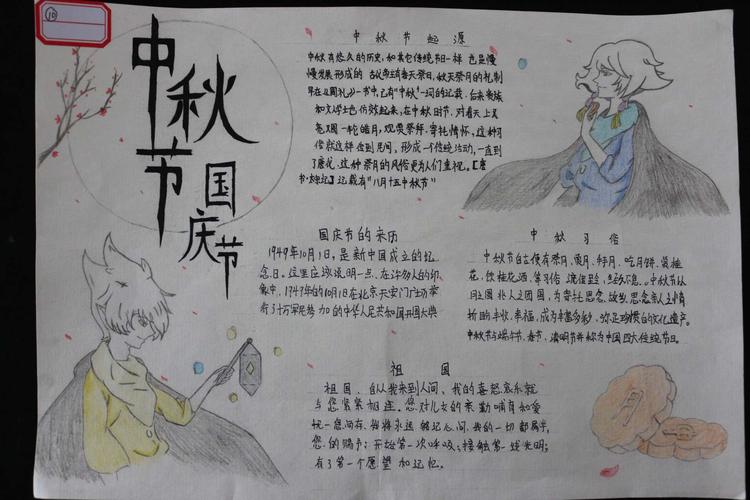 ⑩
中秋节
国庆节
中秋节起源
中秋有悠久的历史，和其它传统节日一样，也是慢
慢发展形成的，古代帝王有春天祭日，秋天祭月的礼制
早在《周礼》一书中，已有“中秋”一词的记载。后来贵族
和文人学士也仿效起来，在中秋时节，对着天上又
亮又圆一轮皓月，观赏祭拜，寄托情怀，这种习
俗就这样传到民间，形成一个传统活动，一直到
了唐代，这种祭月的风俗更为人们重视。《唐
书·太宗记》记载有“八月十五中秋节”
国庆节的来历
1949年10月1日，是新中国成立的纪
念日。这里应该说明一点，在许多人的印
象中，1949年的10月1日在北京天安门广场举
行了十万军民参加的中华人民共和国开国大典
中秋习俗
中秋节自古便有祭月、赏月、拜月、吃月饼、赏桂
花、饮桂花酒等习俗，流传至今，经久不息。中秋节以
月之圆兆人之团圆，为寄托思念故乡，思念亲人之情
祈盼丰收、幸福，成为丰富多彩、弥足珍贵的文化遗产。
中秋节与端午节、春节、清明节并称为中国四大传统节日。
祖国
祖国，自从我来到人间，我的喜怒哀乐就
与您紧紧相连。您对儿女的亲勤哺育和爱
抚一息尚存，我将永远铭记心间，我的一切都属于
您的赐予：开始第一次呼吸；接触第一线光明；
有了第一个愿望和记忆。